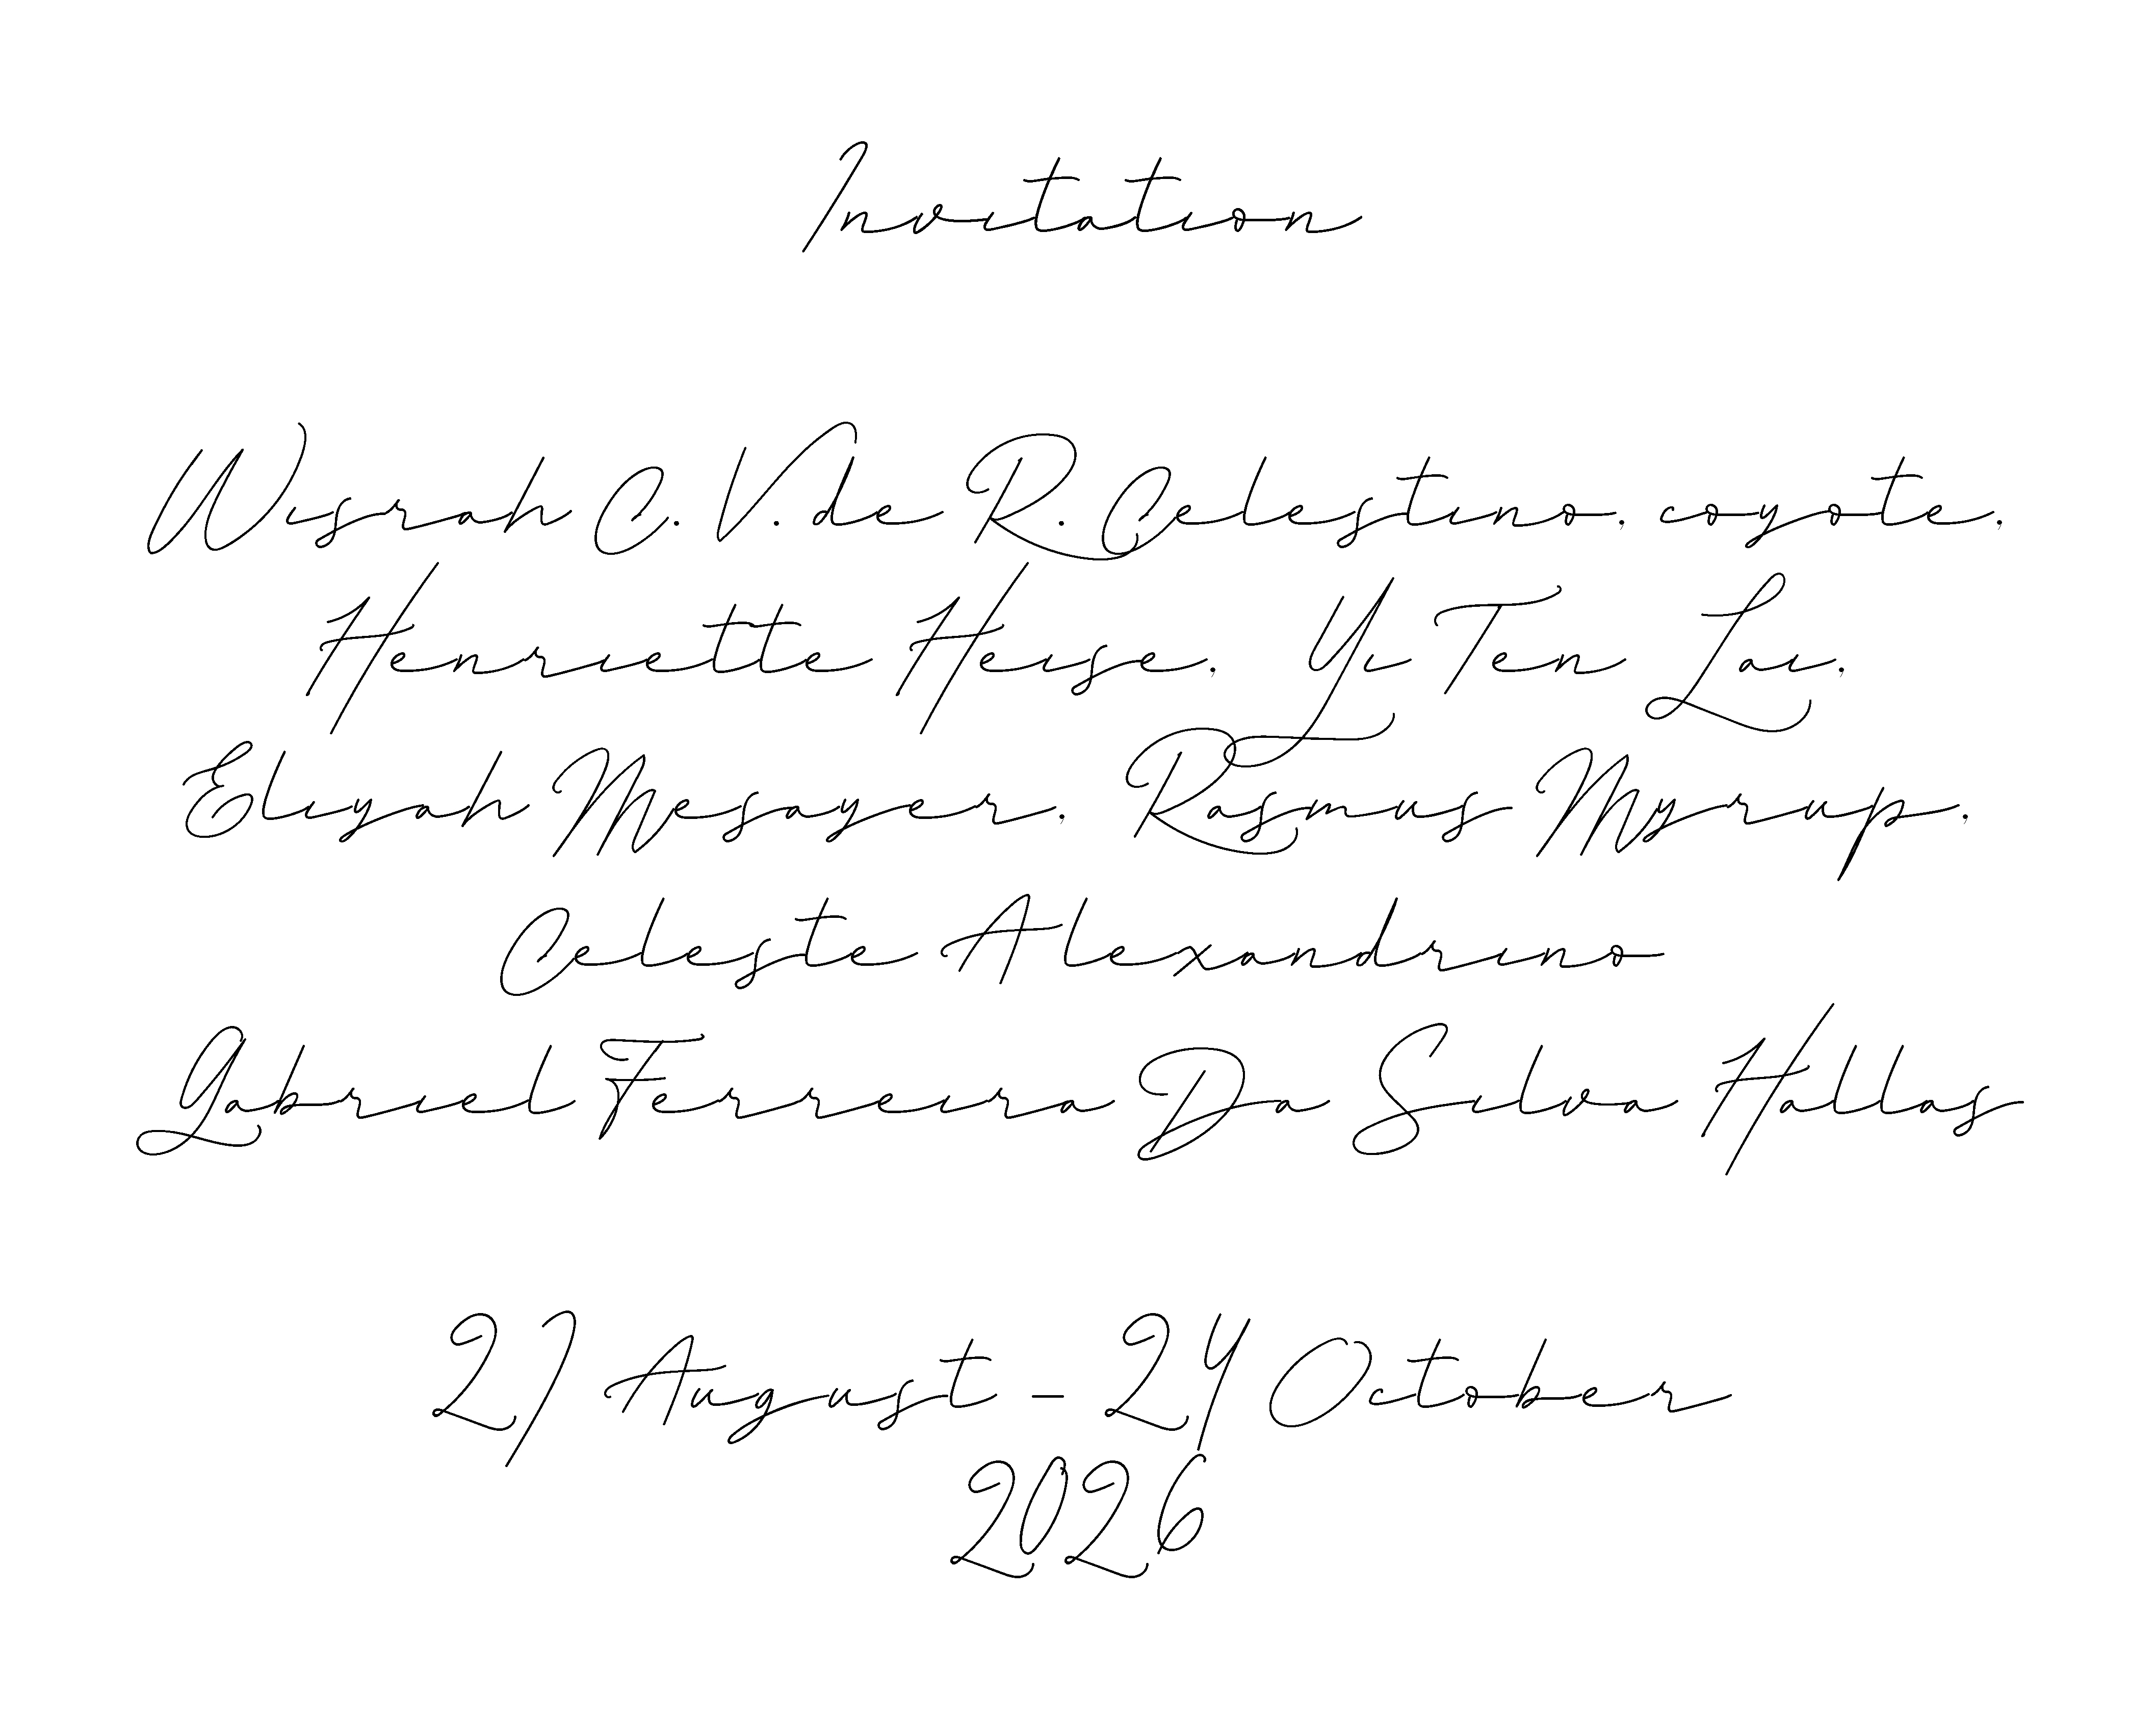 Invitation
Wisrah C. V. de R. Celestino, coyote,
Henriette Heise, Yi Ten Lai,
Eliyah Mesayer, Rasmus Myrup,
Celeste Alexandrino
Gabriel Ferreira Da Silva Hallas
27 August – 24 October
2026